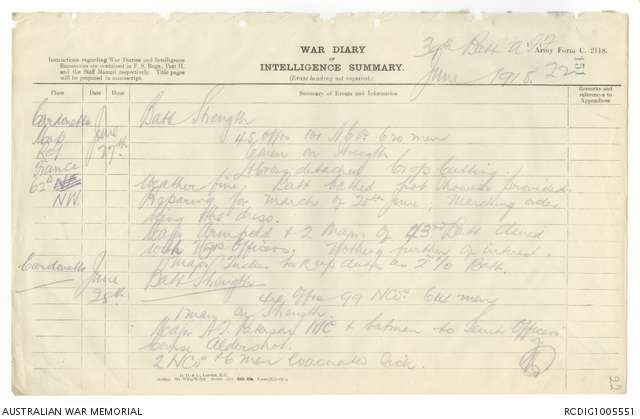 WAR DIARY
OF
INTELLIGENCE SUMMARY.
(Erase heading not required.)
Instructions regarding War Diaries and Intelligence
Summaries are contained in F. S. Regs., Part II.
and the Staff Manual respectively. Title pages
will be prepared in manuscript.
Batt
Army Form C. 2118.
June 1918.
Place
Date
Hour
Summary of Events and Information
Remarks and
references to
Appendices
Cardonette
June
27th
Map
Ref
France
62D
NW
Batt Strength
45 Offrs 101 NCOs 620 men
on strength
detached Crop Cutting.
Weather fine. Batt bathed hot showers provided.
Preparing for march of 28th June; Marching order
being the dress.
Capt Armfield & 2 Majors of 43rd Batt dined
with Officers. Nothing further of interest.
Major Tucker took up duty as 2 I/C Batt
Cardonette
June
28th
Batt Strength
Offrs 99 NCOs 614 men
1 man on Strength.
Capt A.T. Paterson MC & batman to Senior Officers
Course Aldershot.
2 NCOs & 6 men Evacuated Sick.
22
AUSTRALIAN WAR MEMORIAL
RCDIG1005551